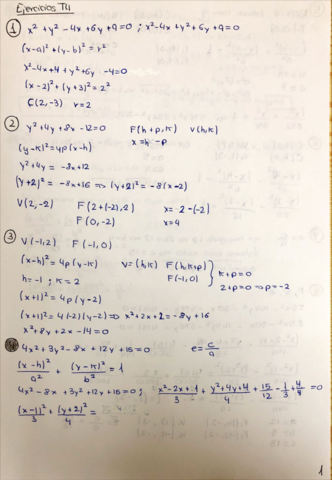 Ejercicios T4
① x² + y² - 4x + 6y + 9 = 0 ; x² - 4x + y² + 6y + 9 = 0
(x-a)² + (y-b)² = r²
x² - 4x + 4 + y² + 6y - 4 = 0
(x-2)² + (y+3)² = 2²
C(2,-3) r = 2
② y² + 4y + 8x - 12 = 0 F(h+p, k) V(h,k)
(y-k)² = 4p(x-h) x = h - p
y² + 4y = -8x + 12
(y+2)² = -8x + 16 ⇒ (y+2)² = -8(x-2)
V(2,-2) F(2+(-2), 2) x = 2-(-2)
F(0,-2) x = 4
③
V(-1,2) F(-1,0)
(x-h)² = 4p(y-k) V = (h,k) F(h,k+p) } k+p=0
h = -1 ; k = 2 F(-1,0) 2+p=0 ⇒ p=-2
(x+1)² = 4p(y-2)
(x+1)² = 4(-2)(y-2) ⇒ x² + 2x + 1 = -8y + 16
x² + 8y + 2x - 14 = 0
4x² + 3y² - 8x + 12y + 16 = 0 e = c/a
(x-h)²/a² + (y-k)²/b² = 1
4x² - 8x + 3y² + 12y + 16 = 0 ; x²-2x+1/3 + y²+4y+4/4 + 15/12 - 1/3 + 4/4 = 0
(x-1)²/3 + (y+2)²/4 =
1